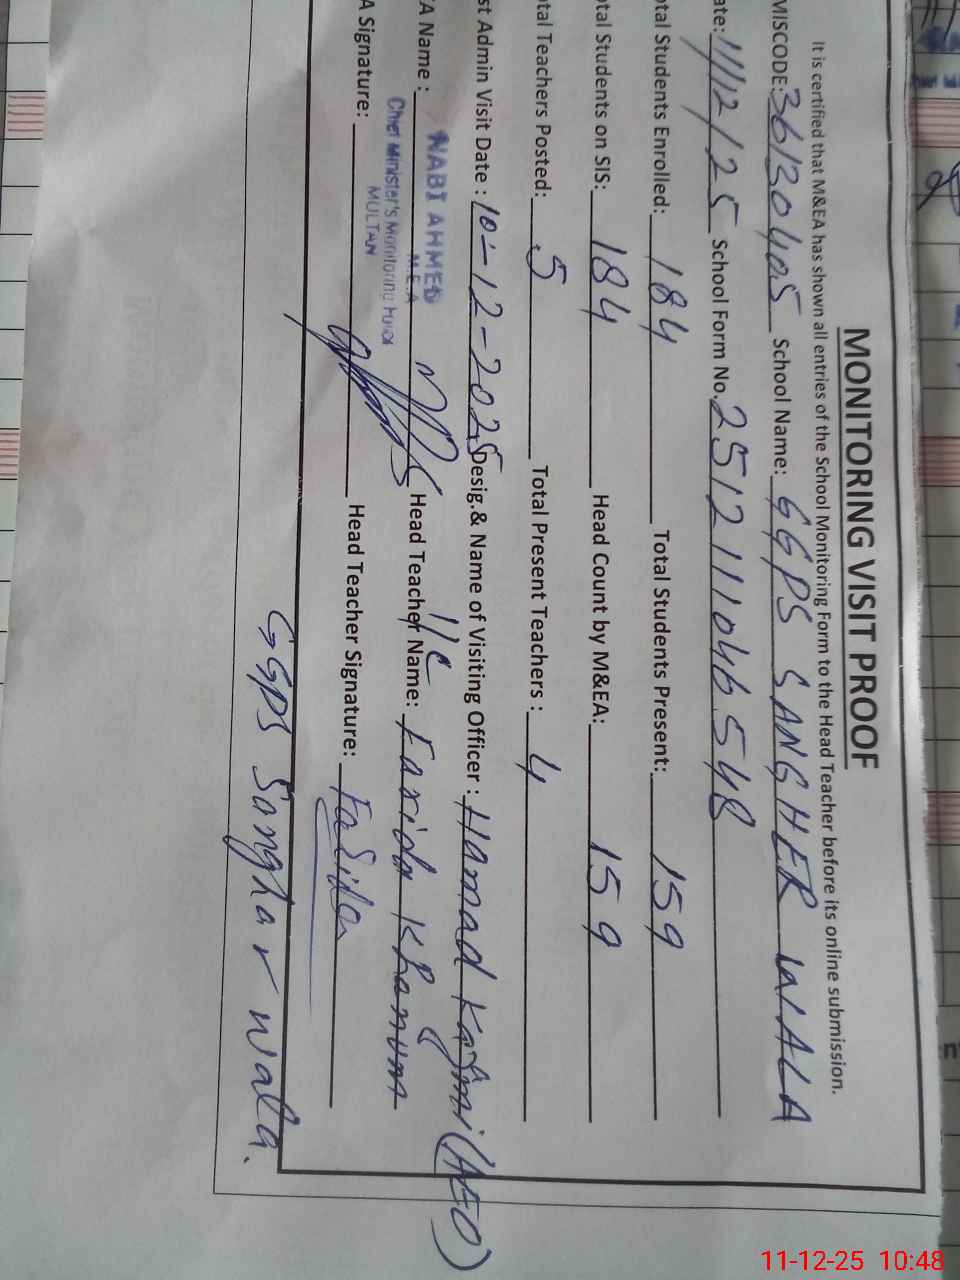 MONITORING VISIT PROOF
It is certified that M&EA has shown all entries of the School Monitoring Form to the Head Teacher before its online submission.
MISCODE: 36130405 School Name: GGPS SANGHER WALA
ate: 11/12/25 School Form No. 2512111046548
otal Students Enrolled: 184 Total Students Present: 159
otal Students on SIS: 184 Head Count by M&EA: 159
otal Teachers Posted: 5 Total Present Teachers : 4
st Admin Visit Date : 10-12-2025 Desig.& Name of Visiting Officer : Hamad Kazmi (AEO)
A Name : NABI AHMED Head Teacher Name: Farida Khanum
I/C
M.E.A
Chief Minister's Monitoring Force
MULTAN
A Signature: Head Teacher Signature: Farida
GGPS Sanghar wala.
11-12-25 10:48